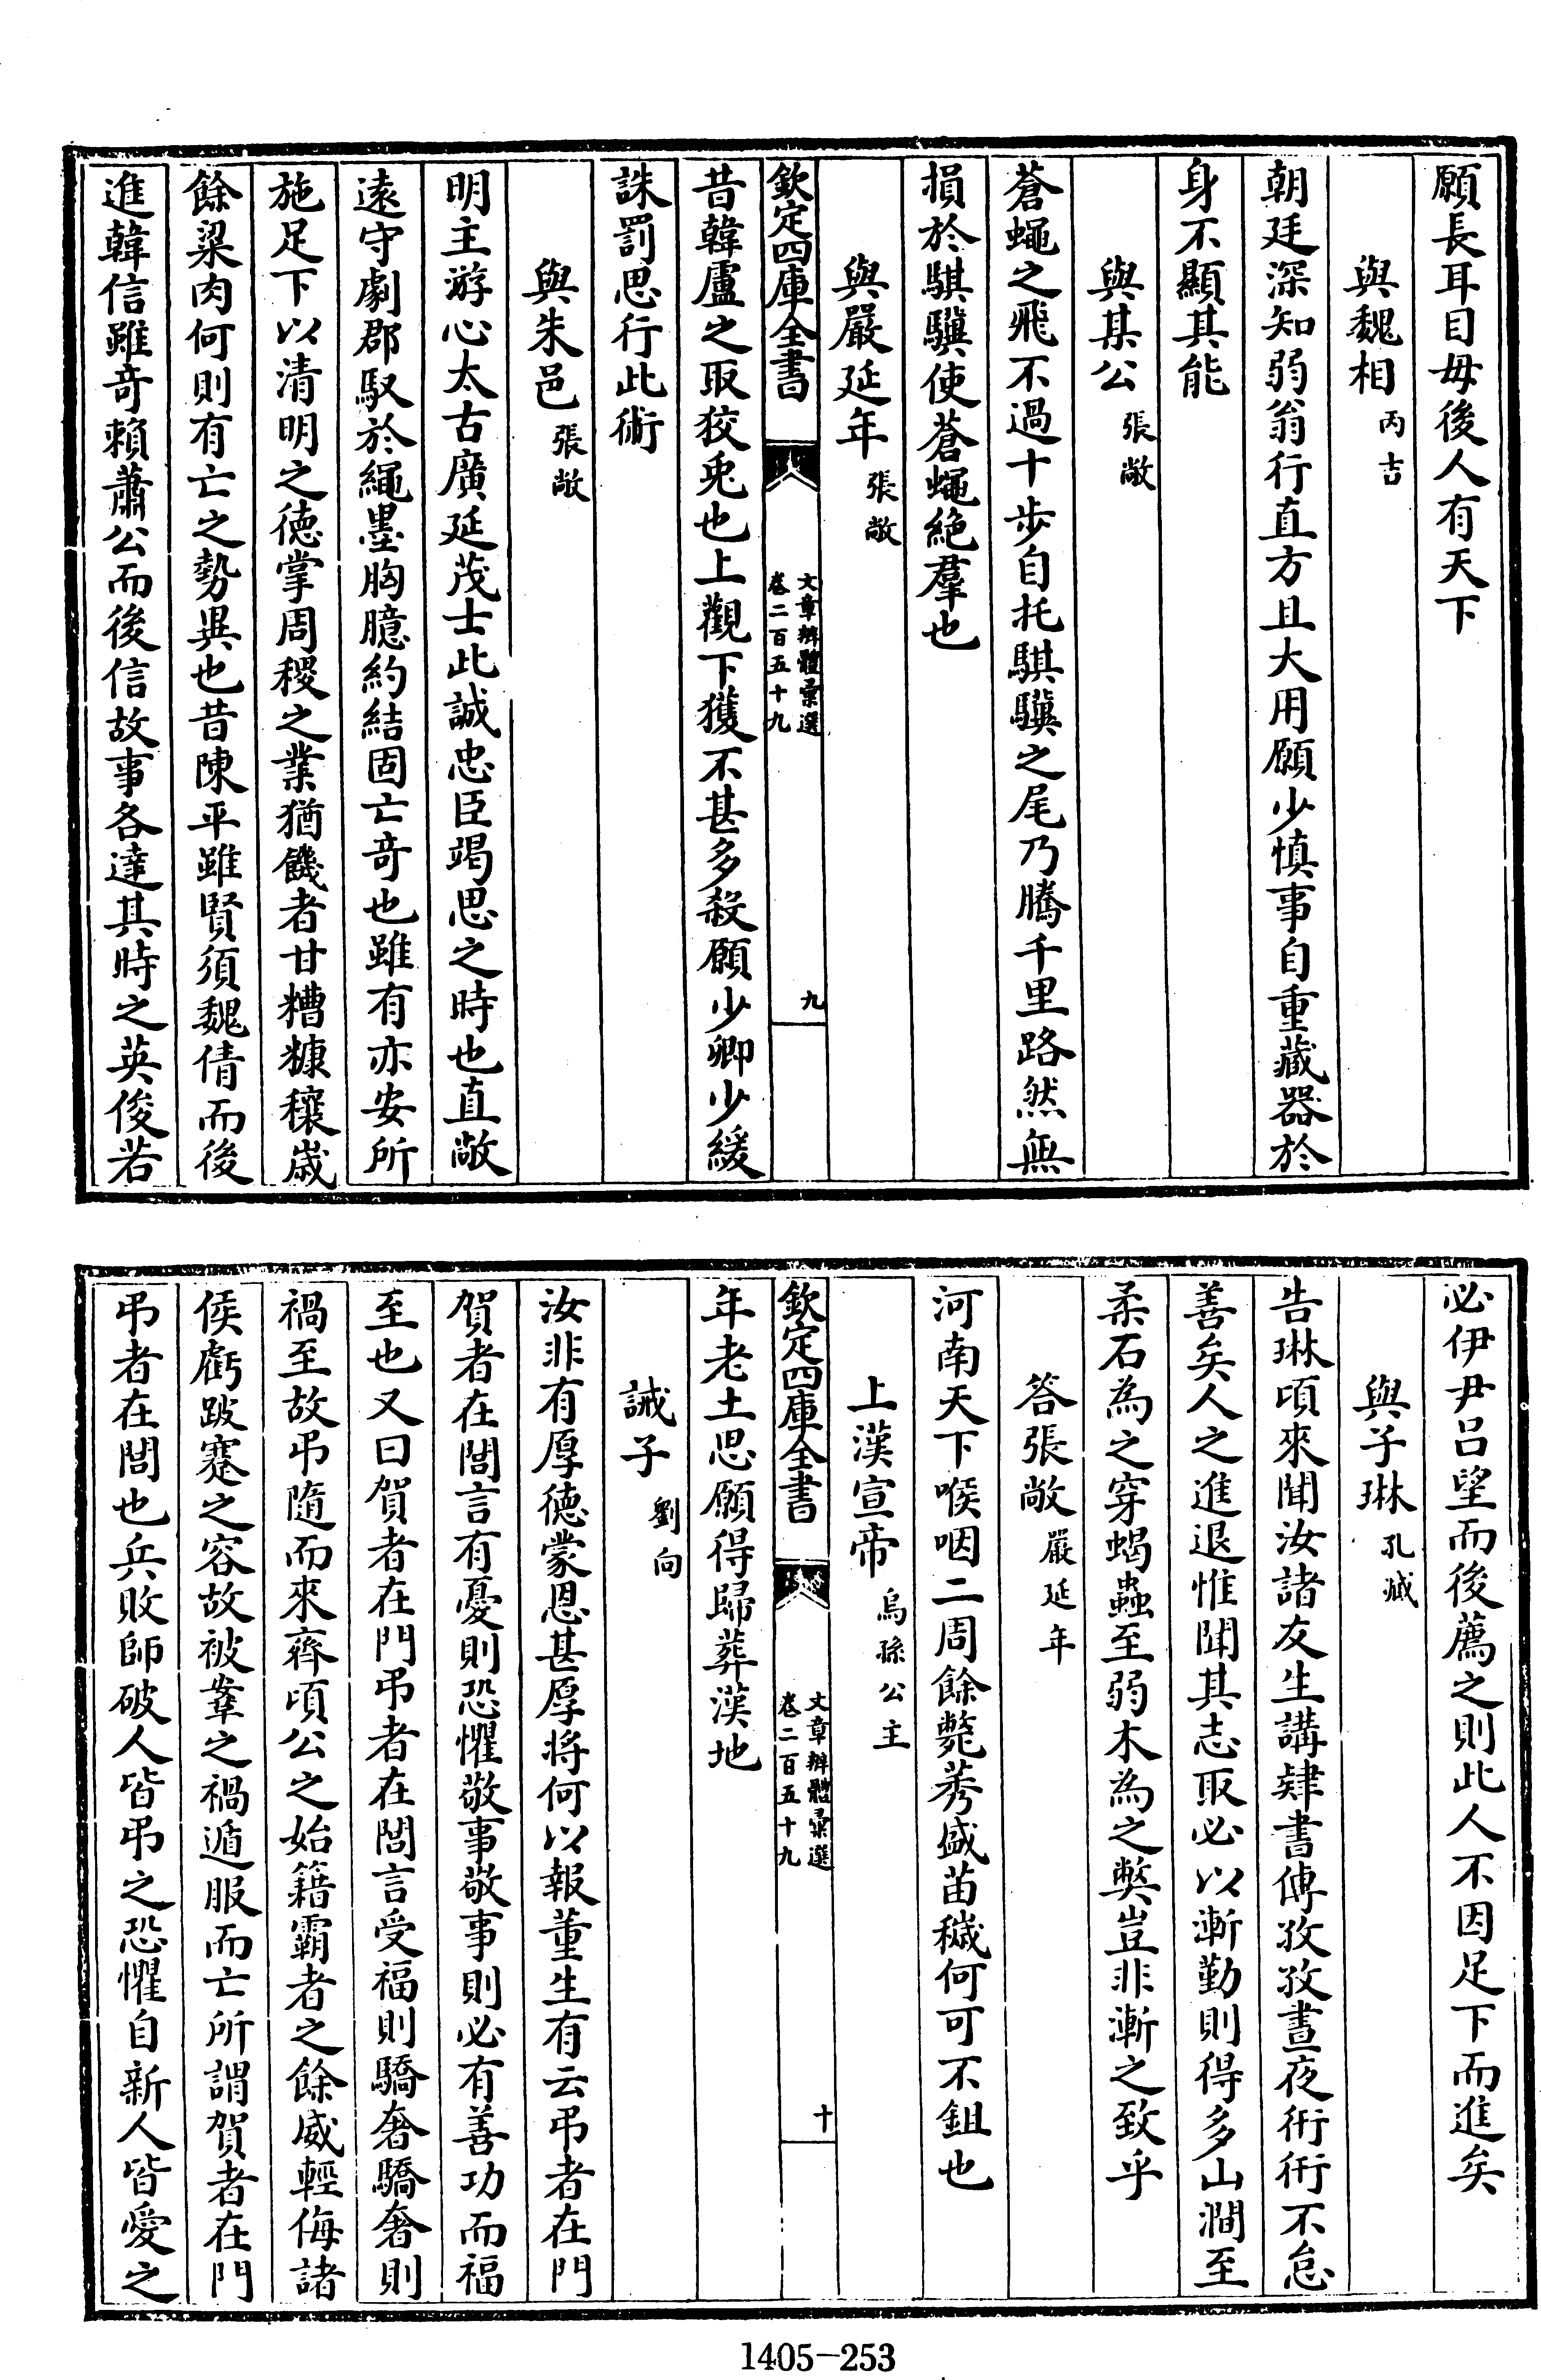 願長耳目毋後人有天下
與魏相丙吉
朝廷深知弱翁行直方且大用願少慎事自重藏器於
身不顯其能
與某公張敞
蒼蠅之飛不過十步自托騏驥之尾乃騰千里路然無
損於騏驥使蒼蠅絶羣也
與嚴延年張敞
欽定四庫全書
文章辨體彙選
卷二百五十九
九
昔韓盧之取狡兎也上觀下獲不甚多殺願少卿少緩
誅罰思行此術
與朱邑張敞
明主游心太古廣延茂士此誠忠臣竭思之時也直敞
遠守劇郡馭於繩墨胸臆約結固亡奇也雖有亦安所
施足下以清明之徳掌周稷之業猶饑者甘糟糠穰嵗
餘粱肉何則有亡之勢異也昔陳平雖賢須魏倩而後
進韓信雖奇賴蕭公而後信故事各達其時之英俊若
必伊尹吕望而後薦之則此人不因足下而進矣
與子琳孔臧
告琳頃來聞汝諸友生講肄書傳孜孜晝夜衎衎不怠
善矣人之進退惟聞其志取必以漸勤則得多山澗至
柔石為之穿蝎蟲至弱木為之弊豈非漸之致乎
答張敞嚴延年
河南天下喉咽二周餘斃莠盛苗穢何可不鉏也
上漢宣帝烏孫公主
欽定四庫全書
文章辨體彙選
卷二百五十九
十
年老土思願得歸葬漢地
誡子劉向
汝非有厚徳蒙恩甚厚将何以報董生有云弔者在門
賀者在閭言有憂則恐懼敬事敬事則必有善功而福
至也又曰賀者在門弔者在閭言受福則驕奢驕奢則
禍至故弔隨而來齊頃公之始籍霸者之餘威輕侮諸
侯虧跛蹇之容故被鞌之禍遁服而亡所謂賀者在門
弔者在閭也兵敗師破人皆弔之恐懼自新人皆愛之
1405-253